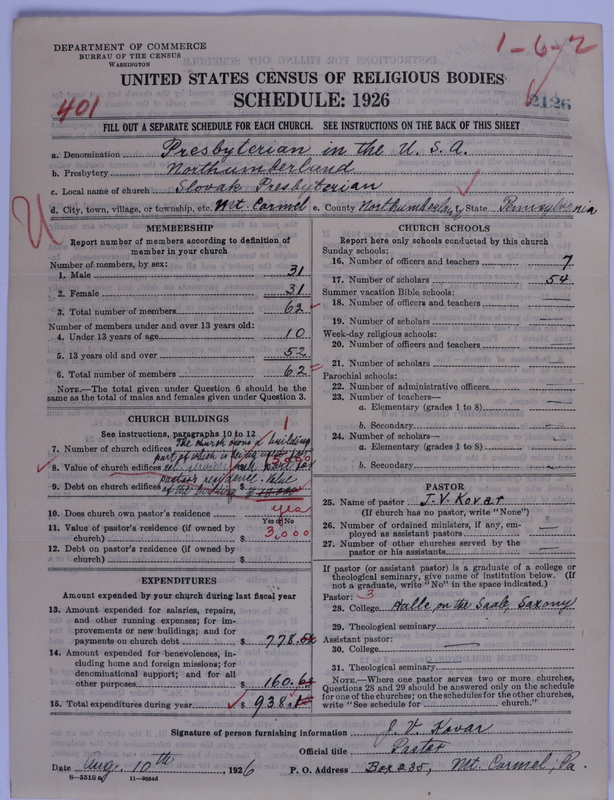 1-6-2
DEPARTMENT OF COMMERCE
BUREAU OF THE CENSUS
WASHINGTON
UNITED STATES CENSUS OF RELIGIOUS BODIES
SCHEDULE: 1926
401
2126
FILL OUT A SEPARATE SCHEDULE FOR EACH CHURCH. SEE INSTRUCTIONS ON THE BACK OF THIS SHEET
a. Denomination Presbyterian in the U. S. A.
b. Presbytery Northumberland
c. Local name of church Slovak Presbyterian
d. City, town, village, or township, etc. Mt. Carmel e. County Northumberland f. State Pennsylvania
MEMBERSHIP
Report number of members according to definition of member in your church
Number of members, by sex:
1. Male 31
2. Female 31
3. Total number of members 62
Number of members under and over 13 years old:
4. Under 13 years of age 10
5. 13 years old and over 52
6. Total number of members 62
NOTE.—The total given under Question 6 should be the
same as the total of males and females given under Question 3.
CHURCH BUILDINGS
See instructions, paragraphs 10 to 12
1
7. Number of church edifices The church owns a building
part of which is
8. Value of church edifices 5,000
pastor's residence. Value
9. Debt on church edifices of the building $
10. Does church own pastor's residence yes
Yes or No
11. Value of pastor's residence (if owned by
church) $ 3,000
12. Debt on pastor's residence (if owned by
church) $
EXPENDITURES
Amount expended by your church during last fiscal year
13. Amount expended for salaries, repairs,
and other running expenses; for im-
provements or new buildings; and for
payments on church debt $ 778.
14. Amount expended for benevolences, in-
cluding home and foreign missions; for
denominational support; and for all
other purposes $ 160.
15. Total expenditures during year $ 938.
CHURCH SCHOOLS
Report here only schools conducted by this church
Sunday schools:
16. Number of officers and teachers 7
17. Number of scholars 54
Summer vacation Bible schools:
18. Number of officers and teachers —
19. Number of scholars —
Week-day religious schools:
20. Number of officers and teachers —
21. Number of scholars —
Parochial schools:
22. Number of administrative officers
23. Number of teachers—
a. Elementary (grades 1 to 8) —
b. Secondary —
24. Number of scholars—
a. Elementary (grades 1 to 8) —
b. Secondary —
PASTOR
25. Name of pastor J. V. Kovar
(If church has no pastor, write "None")
26. Number of ordained ministers, if any, em-
ployed as assistant pastors —
27. Number of other churches served by the
pastor or his assistants —
If pastor (or assistant pastor) is a graduate of a college or
theological seminary, give name of institution below. (If
not a graduate, write "No" in the space indicated.)
Pastor: 3
28. College Halle on the Saale, Saxony
29. Theological seminary
Assistant pastor:
30. College —
31. Theological seminary
NOTE.—Where one pastor serves two or more churches,
Questions 28 and 29 should be answered only on the schedule
for one of the churches; on the schedules for the other churches,
write "See schedule for church."
Signature of person furnishing information J. V. Kovar
Official title Pastor
Date Aug. 10th, 1926 P. O. Address Box 235, Mt. Carmel, Pa.